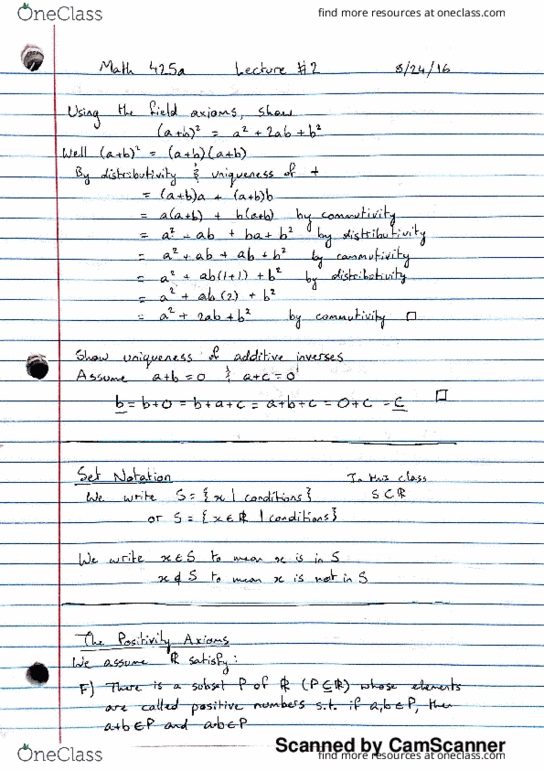 OneClass
find more resources at oneclass.com
Math 425a Lecture #2 8/24/16
Using the field axioms, show
(a+b)² = a² + 2ab + b²
Well (a+b)² = (a+b)(a+b)
By distributivity & uniqueness of +
= (a+b)a + (a+b)b
= a(a+b) + b(a+b) by commutivity
= a² + ab + ba + b² by distributivity
= a² + ab + ab + b² by commutivity
= a² + ab(1+1) + b² by distributivity
= a² + ab(2) + b²
= a² + 2ab + b² by commutivity □
Show uniqueness of additive inverses
Assume a+b=0 & a+c=0
b = b+0 = b+a+c = a+b+c = 0+c = c □
Set Notation In this class
We write S = {x | conditions} S⊂ℝ
or S = {x∈ℝ | conditions}
We write x∈S to mean x is in S
x∉S to mean x is not in S
The Positivity Axioms
We assume ℝ satisfy:
F) There is a subset P of ℝ (P⊆ℝ) whose elements
are called positive numbers s.t. if a,b∈P, then
a+b∈P and ab∈P
Scanned by CamScanner
OneClass
find more resources at oneclass.com